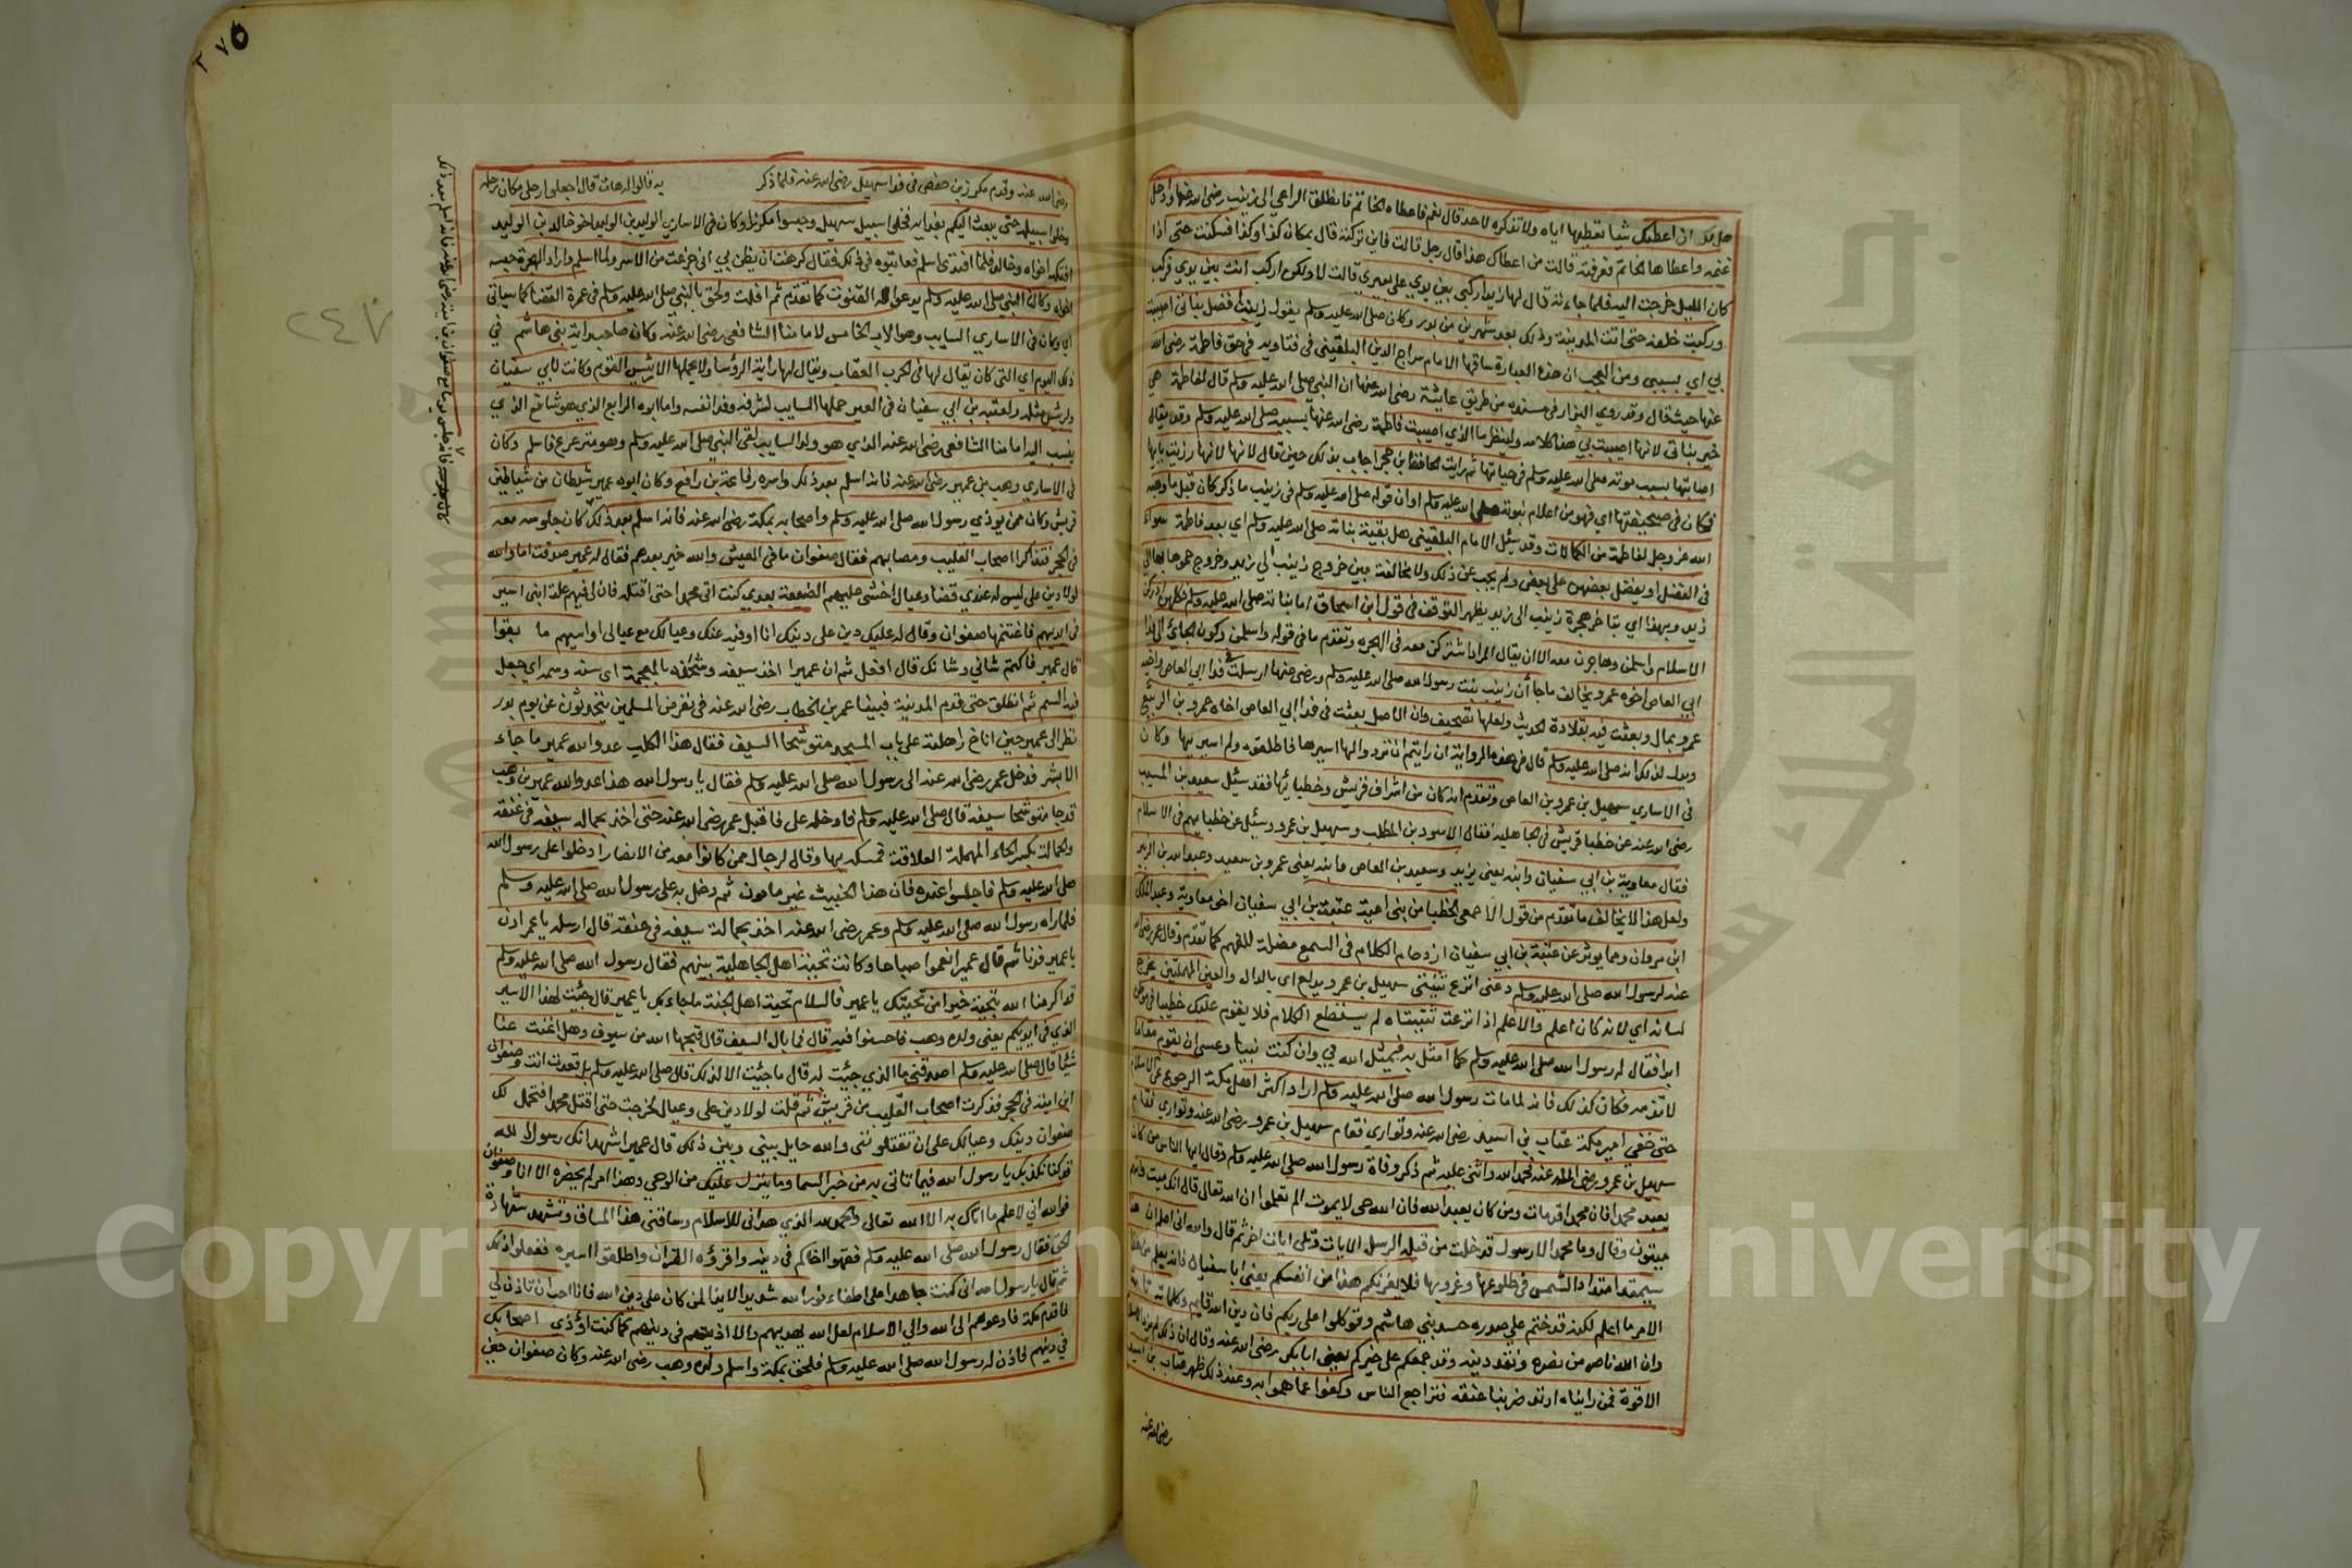 هل لك ان اعطيك شيا تعطيها اياه ولا تذكره لاحد قال نعم فاعطاه الخاتم فانطلق الراعي الى زينب رضي الله عنها وادخل
غنمه واعطاها الخاتم فعرفته قالت من اعطاك هذا قال رجل قالت فاين تركته قال بمكان كذا وكذا فسكنت حتى اذا
كان الليل خرجت اليه فلما جاءته قال لها زيد اركبي بين يدي على بعيري قالت لا ولكن اركب انت بين يدي فركب
وركبت خلفه حتى اتت المدينة وذلك بعد شهرين من بدر وكان صلى الله عليه وسلم يقول زينب افضل بناتي اصيبت
بي اي بسببي ومن العجب ان هذه العبارة ساقها الامام سراج الدين البلقيني في فتاويه في حق فاطمة رضي الله
عنها حيث قال وقد روى البزار في مسنده من طريق عايشة رضي الله عنها ان النبي صلى الله عليه وسلم قال لفاطمة هي
خير بناتي لانها اصيبت بي هذا كلامه ولينظر ما الذي اصيبت فاطمة رضي الله عنها بسببه صلى الله عليه وسلم وقد يقال
اصابتها بسبب موته صلى الله عليه وسلم في حياتها ثم رايت الحافظ ابن حجر اجاب بذلك حيث قال لانها رزئت بابيها
فكان في صحيفتها اي فهو من اعلام نبوته صلى الله عليه وسلم او ان قوله صلى الله عليه وسلم في زينب ما ذكر كان قبل ما وهبه
الله عز وجل لفاطمة من الكمالات وقد سئل الامام البلقيني هل بقية بناته صلى الله عليه وسلم اي بعد فاطمة سواء
في الفضل او يفضل بعضهن على بعض ولم يجب عن ذلك ولا مخالفة بين خروج زينب الى زيد وخروج حموها بها الى
زيد وبهذا اي بتاخر هجرة زينب الى زيد يظهر التوقف في قول ابن اسحاق اما بناته صلى الله عليه وسلم فكلهن ادركن
الاسلام واسلمن وهاجرن معه الا ان يقال المراد اشتركن معه في الهجرة وتقدم ما في قوله واسلمن وكون الجائي
ابي العاص اخوه عمرو يخالف ما جا أن زينب بنت رسول الله صلى الله عليه وسلم ورضي عنها ارسلت في فدا ابي العاص واخيه
عمرو بمال وبعثت فيه بقلادة الحديث ولعلها تصحيف وان الاصل بعثت في فدا ابي العاص اخاه عمرو بن الربيع
ويدل لذلك انه صلى الله عليه وسلم قال في هذه الرواية ان رايتم ان تردوا لها اسيرها فاطلقوه ولم اسيريها وكان
في الاساري سهيل بن عمرو بن العاص وتقدم انه كان من اشراف قريش وخطبائها فقد سئل سعيد بن المسيب
رضي الله عنه عن خطبا قريش في الجاهلية فقال الاسود بن المطلب وسهيل بن عمرو وسئل عن خطبايهم في الاسلام
فقال معاوية بن ابي سفيان وابنه يعني يزيد وسعيد بن العاص وابنه يعني عمرو بن سعيد وعبد الله بن الزبير
ولعل هذا لا يخالف ما تقدم من قول الاصمعي الخطبا من بني امية عتبة بن ابي سفيان اخي معاوية وعبد الملك
ابن مروان ومما يوثر عن عتبة بن ابي سفيان ازدحام الكلام في السمع مضلة للفهم كما تقدم وقال عمر رضي الله
عنه لرسول الله صلى الله عليه وسلم دعني انزع ثنيتي سهيل بن عمرو يدلع اي بالدال والعين المهملتين يخرج
لسانه اي لانه كان اعلم والاعلم اذا نزعت ثنيتاه لم يستطع الكلام فلا يقوم عليك خطيبا في موطن
ابدا فقال له رسول الله صلى الله عليه وسلم لا امثل به فيمثل الله بي وان كنت نبيا وعسى ان يقوم مقاما
لا تذمه فكان كذلك فانه لما مات رسول الله صلى الله عليه وسلم اراد اكثر اهل مكة الرجوع عن الاسلام
حتى خفي امير مكة عتاب بن اسيد رضي الله عنه وتوارى فقام سهيل بن عمرو رضي الله عنه وتوارى فقام
سهيل بن عمرو رضي الله عنه فحمد الله واثنى عليه ثم ذكر وفاة رسول الله صلى الله عليه وسلم وقال ايها الناس من كان
يعبد محمدا فان محمدا قد مات ومن كان يعبد الله فان الله حي لا يموت الم تعلموا ان الله تعالى قال انك ميت وانهم
ميتون وقال وما محمد الا رسول قد خلت من قبله الرسل الايات وتلى ايات اخر ثم قال والله اني اعلم ان هذا
سيمتد امتداد الشمس في طلوعها وغروبها فلا يغرنكم هذا من انفسكم يعني ابا سفيان فانه يعلم من هذا
الامر ما اعلم لكنه قد ختم على صدره حسد بني هاشم وتوكلوا على ربكم فان دين الله قايم وكلمته تامة
وان الله ناصر من نصره ونقو دينه وقد جمعكم على خيركم يعني ابا بكر رضي الله عنه وقال ان ذلك لم يزد الاسلام
الا قوة فمن رايناه ارتد ضربنا عنقه فتراجع الناس وكفوا عما هموا به وعند ذلك ظهر عتاب بن اسيد
رضي الله عنه
٢٧٥
٢٤٧
رضي الله عنه وقدم مكرز بن حفص في فدا سهيل رضي الله عنه فلما ذكر به قالوا له هات قال اجعلوا رجلي مكان رجله
وخلوا سبيله حتى يبعث اليكم بفدايه فخلوا سبيل سهيل وحبسوا مكرزا وكان في الاساري الوليد بن الوليد اخو خالد بن الوليد
افتكه اخواه وخالد فلما افتدى اسلم فعاتبوه في ذلك فقال كرهت ان يظن بي اني جزعت من الاسر ولما اسلم واراد الهجرة حبسه
اخواه وكان النبي صلى الله عليه وسلم يدعو له في القنوت كما تقدم ثم افلت ولحق بالنبي صلى الله عليه وسلم في عمرة القضا كما سياتي
اي وكان في الاساري السايب وهو الاب الخامس لامامنا الشافعي رضي الله عنه وكان صاحب راية بني هاشم في
ذلك اليوم اي التي كان يقال لها في الحرب العقاب ويقال لها راية الرؤسا ولا يحملها الا رئيس القوم وكانت لابي سفيان
او لرئيس مثله ولغيبة ابي سفيان في العير حملها السايب لشرفه وفدا نفسه واما ابوه الرابع الذي هو شافع الذي
ينسب اليه امامنا الشافعي رضي الله عنه الذي هو ولد السايب لقي النبي صلى الله عليه وسلم وهو مترعرع فاسلم وكان
في الاساري وهب بن عمير رضي الله عنه فانه اسلم بعد ذلك واسره رفاعة بن رافع وكان ابوه عمير شيطان من شياطين
قريش وكان ممن يوذي رسول الله صلى الله عليه وسلم واصحابه بمكة رضي الله عنه فانه اسلم بعد ذلك كان جلوسه معه
في الحجر فتذاكرا اصحاب القليب ومصابهم فقال صفوان ما في العيش والله خير بعدهم فقال له عمير صدقت اما والله
لولا دين علي ليس له عندي قضا وعيال اخشى عليهم الضيعة بعدي كنت اتي محمدا حتى اقتله فان لي فيهم علة ابني اسير
في ايديهم فاغتنمها صفوان وقال له عليك دين علي دينك انا اوفيه عنك وعيالك مع عيالي اواسيهم ما بقوا
قال عمير فاكتم شاني وشانك قال افعل ثم ان عميرا اخذ سيفه وشحذه بالمعجمة اي سنه وسمه اي جعل
فيه السم ثم انطلق حتى قدم المدينة فبينا عمر بن الخطاب رضي الله عنه في نفر من المسلمين يتحدثون عن يوم بدر
نظر الى عمير حين اناخ راحلته على باب المسجد متوشحا السيف فقال هذا الكلب عدو الله عمير ما جاء
الا بشر فدخل عمر رضي الله عنه الى رسول الله صلى الله عليه وسلم فقال يا رسول الله هذا عدو الله عمير بن وهب
قد جا متوشحا سيفه قال صلى الله عليه وسلم فادخله علي فاقبل عمر رضي الله عنه حتى اخذ بحمالة سيفه في عنقه
والحمالة بكسر الحاء المهملة العلاقة فمسكه بها وقال لرجال ممن كانوا معه من الانصار ادخلوا على رسول الله
صلى الله عليه وسلم فاجلسوا عنده فان هذا الخبيث غير مامون ثم دخل به على رسول الله صلى الله عليه وسلم
فلما راه رسول الله صلى الله عليه وسلم وعمر رضي الله عنه اخذ بحمالة سيفه في عنقه قال ارسله يا عمر ادن
يا عمير فدنا ثم قال عمير انعموا صباحا وكانت تحية اهل الجاهلية بينهم فقال رسول الله صلى الله عليه وسلم
قد اكرمنا الله بتحية خيرا من تحيتك يا عمير فالسلام تحية اهل الجنة ما جاء بك يا عمير قال جئت لهذا الاسير
الذي في ايديكم يعني ولده وهب فاحسنوا فيه قال فما بال السيف قال قبحها الله من سيوف وهل اغنت عنا
شيئا قال صلى الله عليه وسلم اصدقني ما الذي جئت له قال ما جئت الا لذلك قال صلى الله عليه وسلم بل قعدت انت وصفوان
ابن امية في الحجر فذكرت اصحاب القليب من قريش ثم قلت لولا دين علي وعيال لخرجت حتى اقتل محمدا فتحمل لك
صفوان دينك وعيالك على ان تقتلونني والله حايل بيني وبين ذلك قال عمير اشهد انك رسول الله
قد كنا نكذبك يا رسول الله فيما تاتي به من خبر السما وما ينزل عليك من الوحي وهذا امر لم يحضره الا انا وصفوان
فوالله اني لاعلم ما اتاك به الا الله تعالى والحمد لله الذي هداني للاسلام وساقني هذا المساق وتشهد شهادة
الحق فقال رسول الله صلى الله عليه وسلم فقهوا اخاكم في دينه واقرؤه القران واطلقوا اسيره ففعلوا ذلك
ثم قال يا رسول الله اني كنت جاهدا على اطفاء نور الله شديد الايذا لمن كان على دين الله فانا احب ان تاذن لي
فاقدم مكة فادعوهم الى الله والى الاسلام لعل الله يهديهم والا اذيتهم في دينهم كما كنت اؤذي اصحابك
في دينهم فاذن له رسول الله صلى الله عليه وسلم فلحق بمكة واسلم ولده وهب رضي الله عنه وكان صفوان حين
Copyright © King Saud University